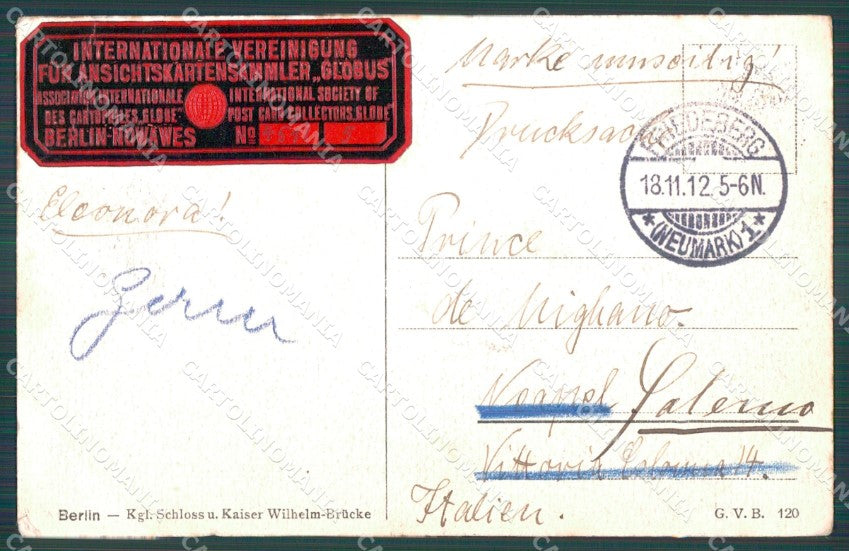 INTERNATIONALE VEREINIGUNG
FÜR ANSICHTSKARTENSAMMLER „GLOBUS"
ASSOCIATION INTERNATIONALE
DES CARTOPHILES „GLOBE"
INTERNATIONAL SOCIETY OF
POST CARD COLLECTORS „GLOBE"
BERLIN-NOWAWES
No
Marke umseitig!
Drucksache
18.11.12. 5-6N.
* (NEUMARK) 1 *
Eleonora!
Prince
de Migliano.
Neapel Salerno
Vittoria Colonna 14.
Italien.
Berlin — Kgl. Schloss u. Kaiser Wilhelm-Brücke
G. V. B. 120
CARTOLINOMANIA